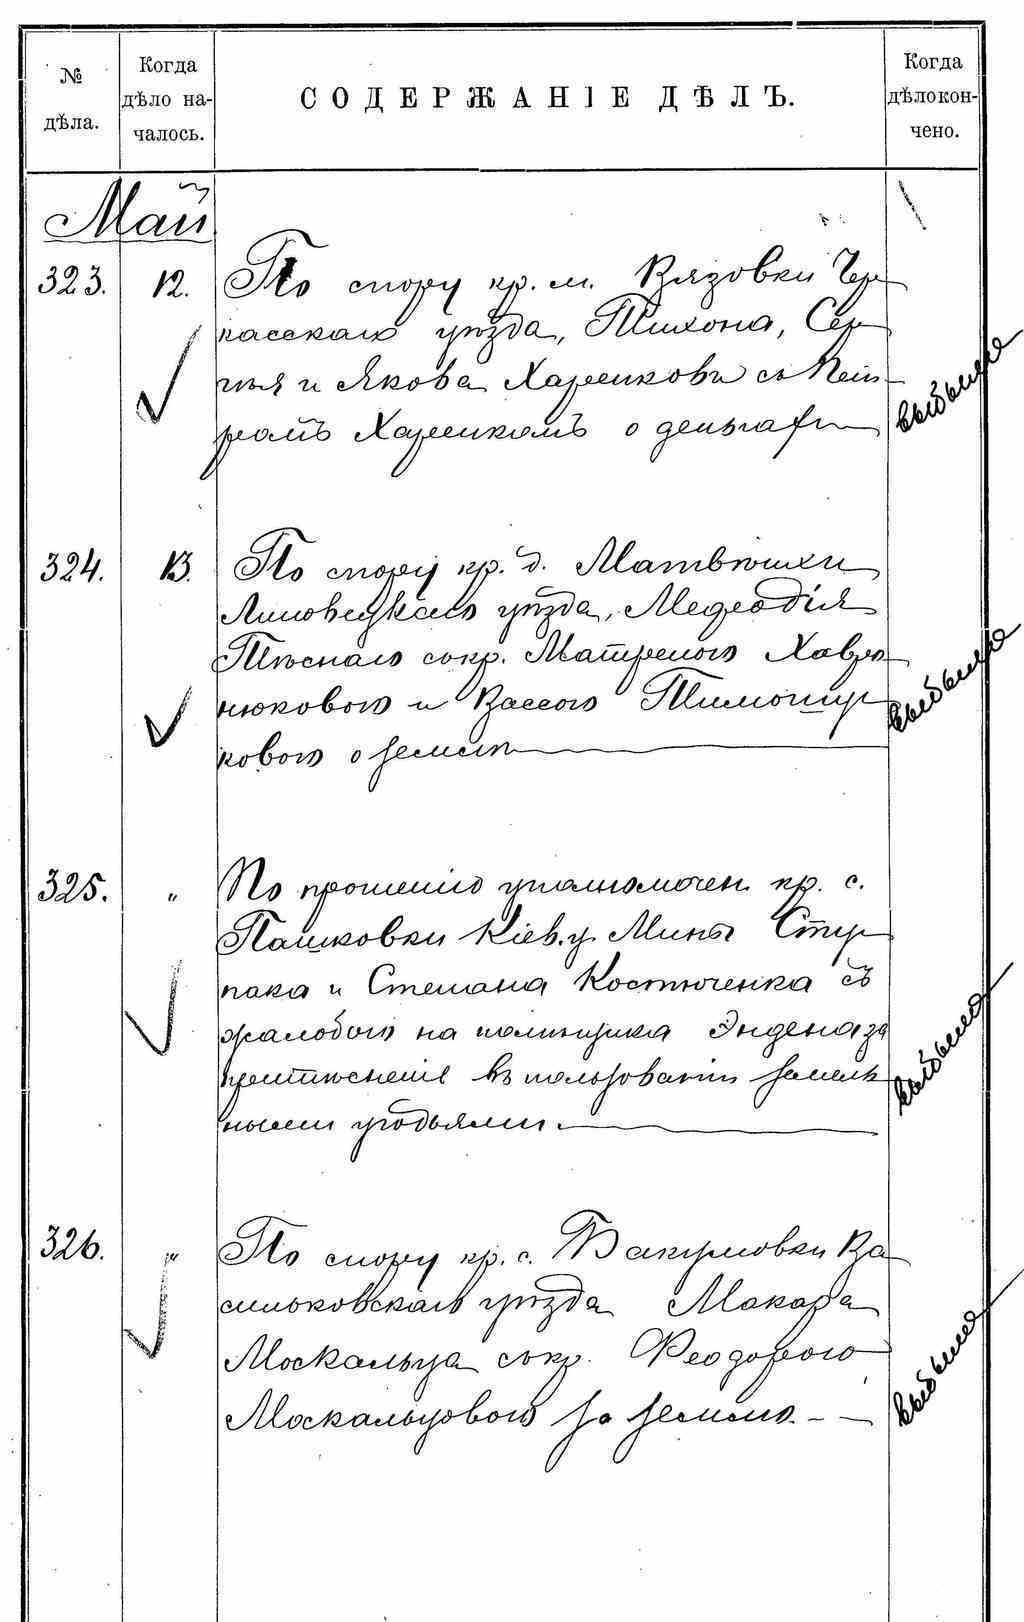 № дѣла.
Когда дѣло на-
чалось.
СОДЕРЖАНІЕ ДѢЛЪ.
Когда дѣло кон-
чено.
Май
323. 12. По спору кр. м. Вязовки Чер
касскаго уѣзда, Тихона, Сер
гѣя и Якова Харченковы съ Пет
ромъ Харченкомъ о деньгах
выбыла
324. 13. По спору кр. д. Матвѣихи
Липовецкаго уѣзда, Мефодія
Тѣснаго съ кр. Матреною Хавро
нюковою и Вассою Тимошу
ковою о земле
выбыла
325. " По прошенію уполномочен. кр. с.
Пашковки Кіев. у. Мины Сту
пака и Степана Костюченка съ
жалобою на помѣщика за
притѣсненіе въ пользованіи земель
ными угодьями.
выбыла
326. " По спору кр. с. Вакумовки Ва
сильковскаго уѣзда Макара
Москальца съ кр. Феодорою
Москальцовою за землю. - -
выбыла